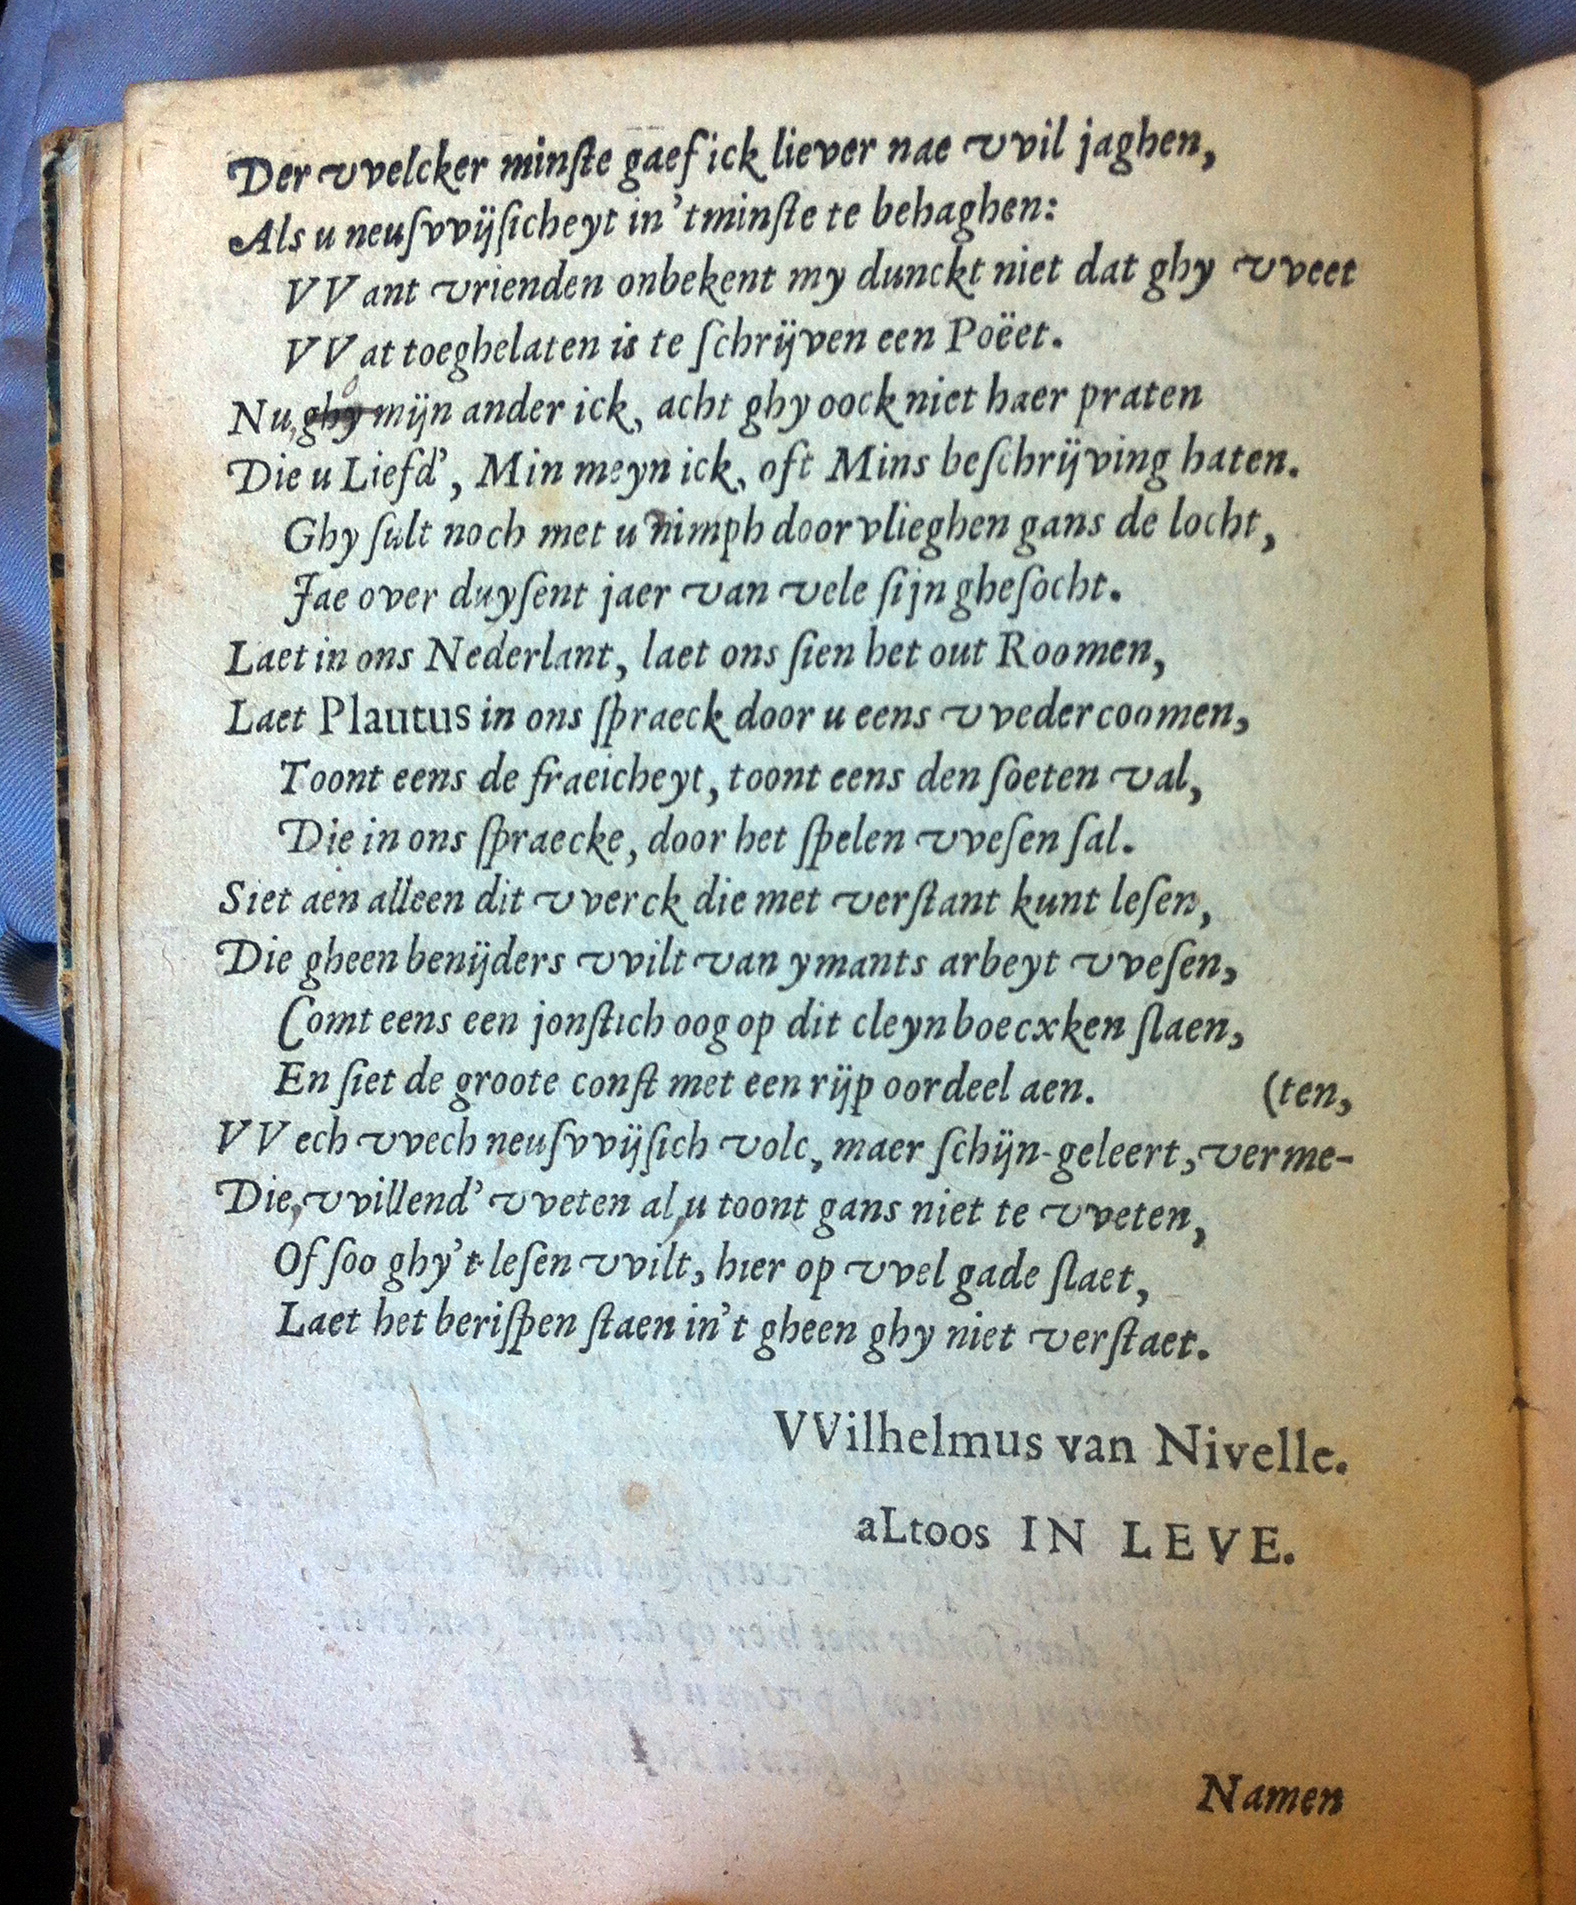 Der vvelcker minſte gaef ick liever nae vvil jaghen,
Als u neuſvvijſicheyt in 't minſte te behaghen:
VVant vrienden onbekent my dunckt niet dat ghy vveet
VVat toeghelaten is te ſchrijven een Poëet.
Nu, ghy mijn ander ick, acht ghy oock niet haer praten
Die u Liefd', Min meyn ick, oft Mins beſchrijving haten.
Ghy ſult noch met u nimph doorvlieghen gans de locht,
Jae over duyſent jaer van vele ſijn gheſocht.
Laet in ons Nederlant, laet ons ſien het out Roomen,
Laet Plautus in ons ſpraeck door u eens vveder coomen,
Toont eens de fraeicheyt, toont eens den ſoeten val,
Die in ons ſpraecke, door het ſpelen vveſen ſal.
Siet aen alleen dit vverck die met verſtant kunt leſen,
Die gheen benijders vvilt van ymants arbeyt vveſen,
Comt eens een jonſtich oog op dit cleyn boecxken ſlaen,
En ſiet de groote conſt met een rijp oordeel aen. (ten,
VVech vvech neuſvvijſich volc, maer ſchijn-geleert, verme-
Die, vvillend' vveten al, u toont gans niet te vveten,
Of ſoo ghy't leſen vvilt, hier op vvel gade ſlaet,
Laet het beriſpen ſtaen in't gheen ghy niet verſtaet.
VVilhelmus van Nivelle.
aLtoos IN LEVE.
Namen